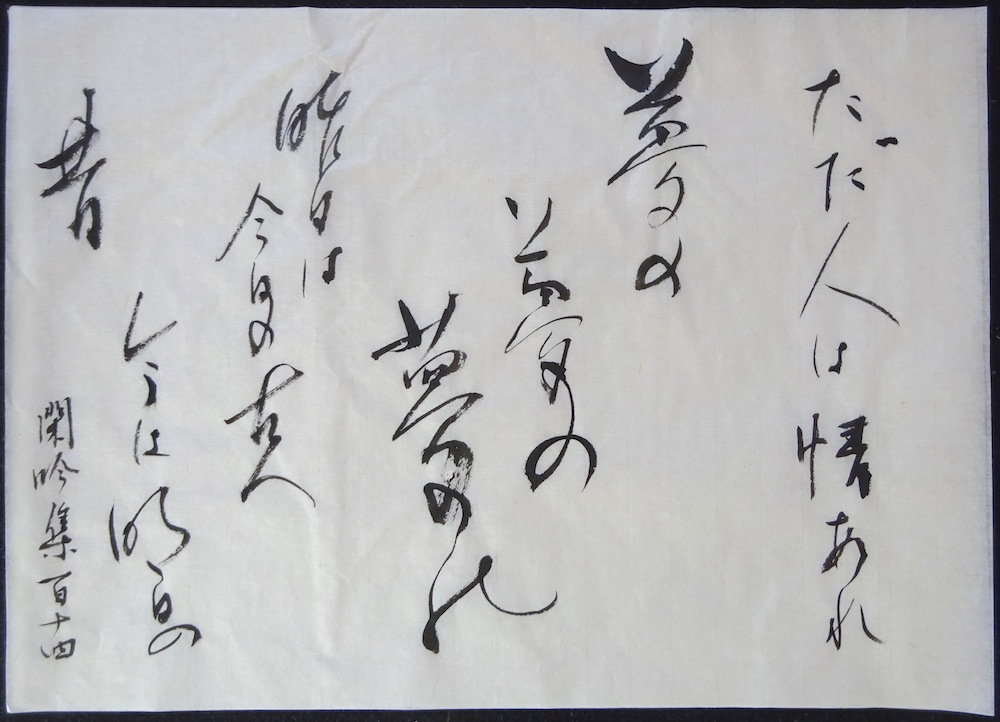 ただ人は情あれ
夢の
夢の
夢の
昨日は
今日の古へ
今は明日の
昔
閑吟集百十四